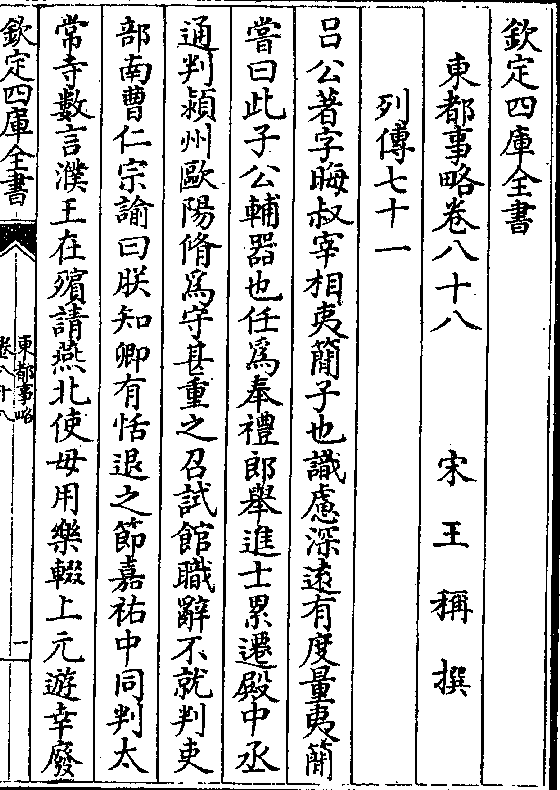 欽定四庫全書
東都事略卷八十八　宋　王　稱　撰
列傳七十一
吕公著字晦叔宰相夷簡子也識慮深遠有度量夷簡
嘗曰此子公輔器也任為奉禮郎舉進士累遷殿中丞
通判潁州歐陽脩為守甚重之召試館職辭不就判吏
部南曹仁宗諭曰朕知卿有恬退之節嘉祐中同判太
常寺數言濮王在殯請燕北使毋用樂輟上元遊幸廢
欽定四庫全書
東都事略
卷八十八
一